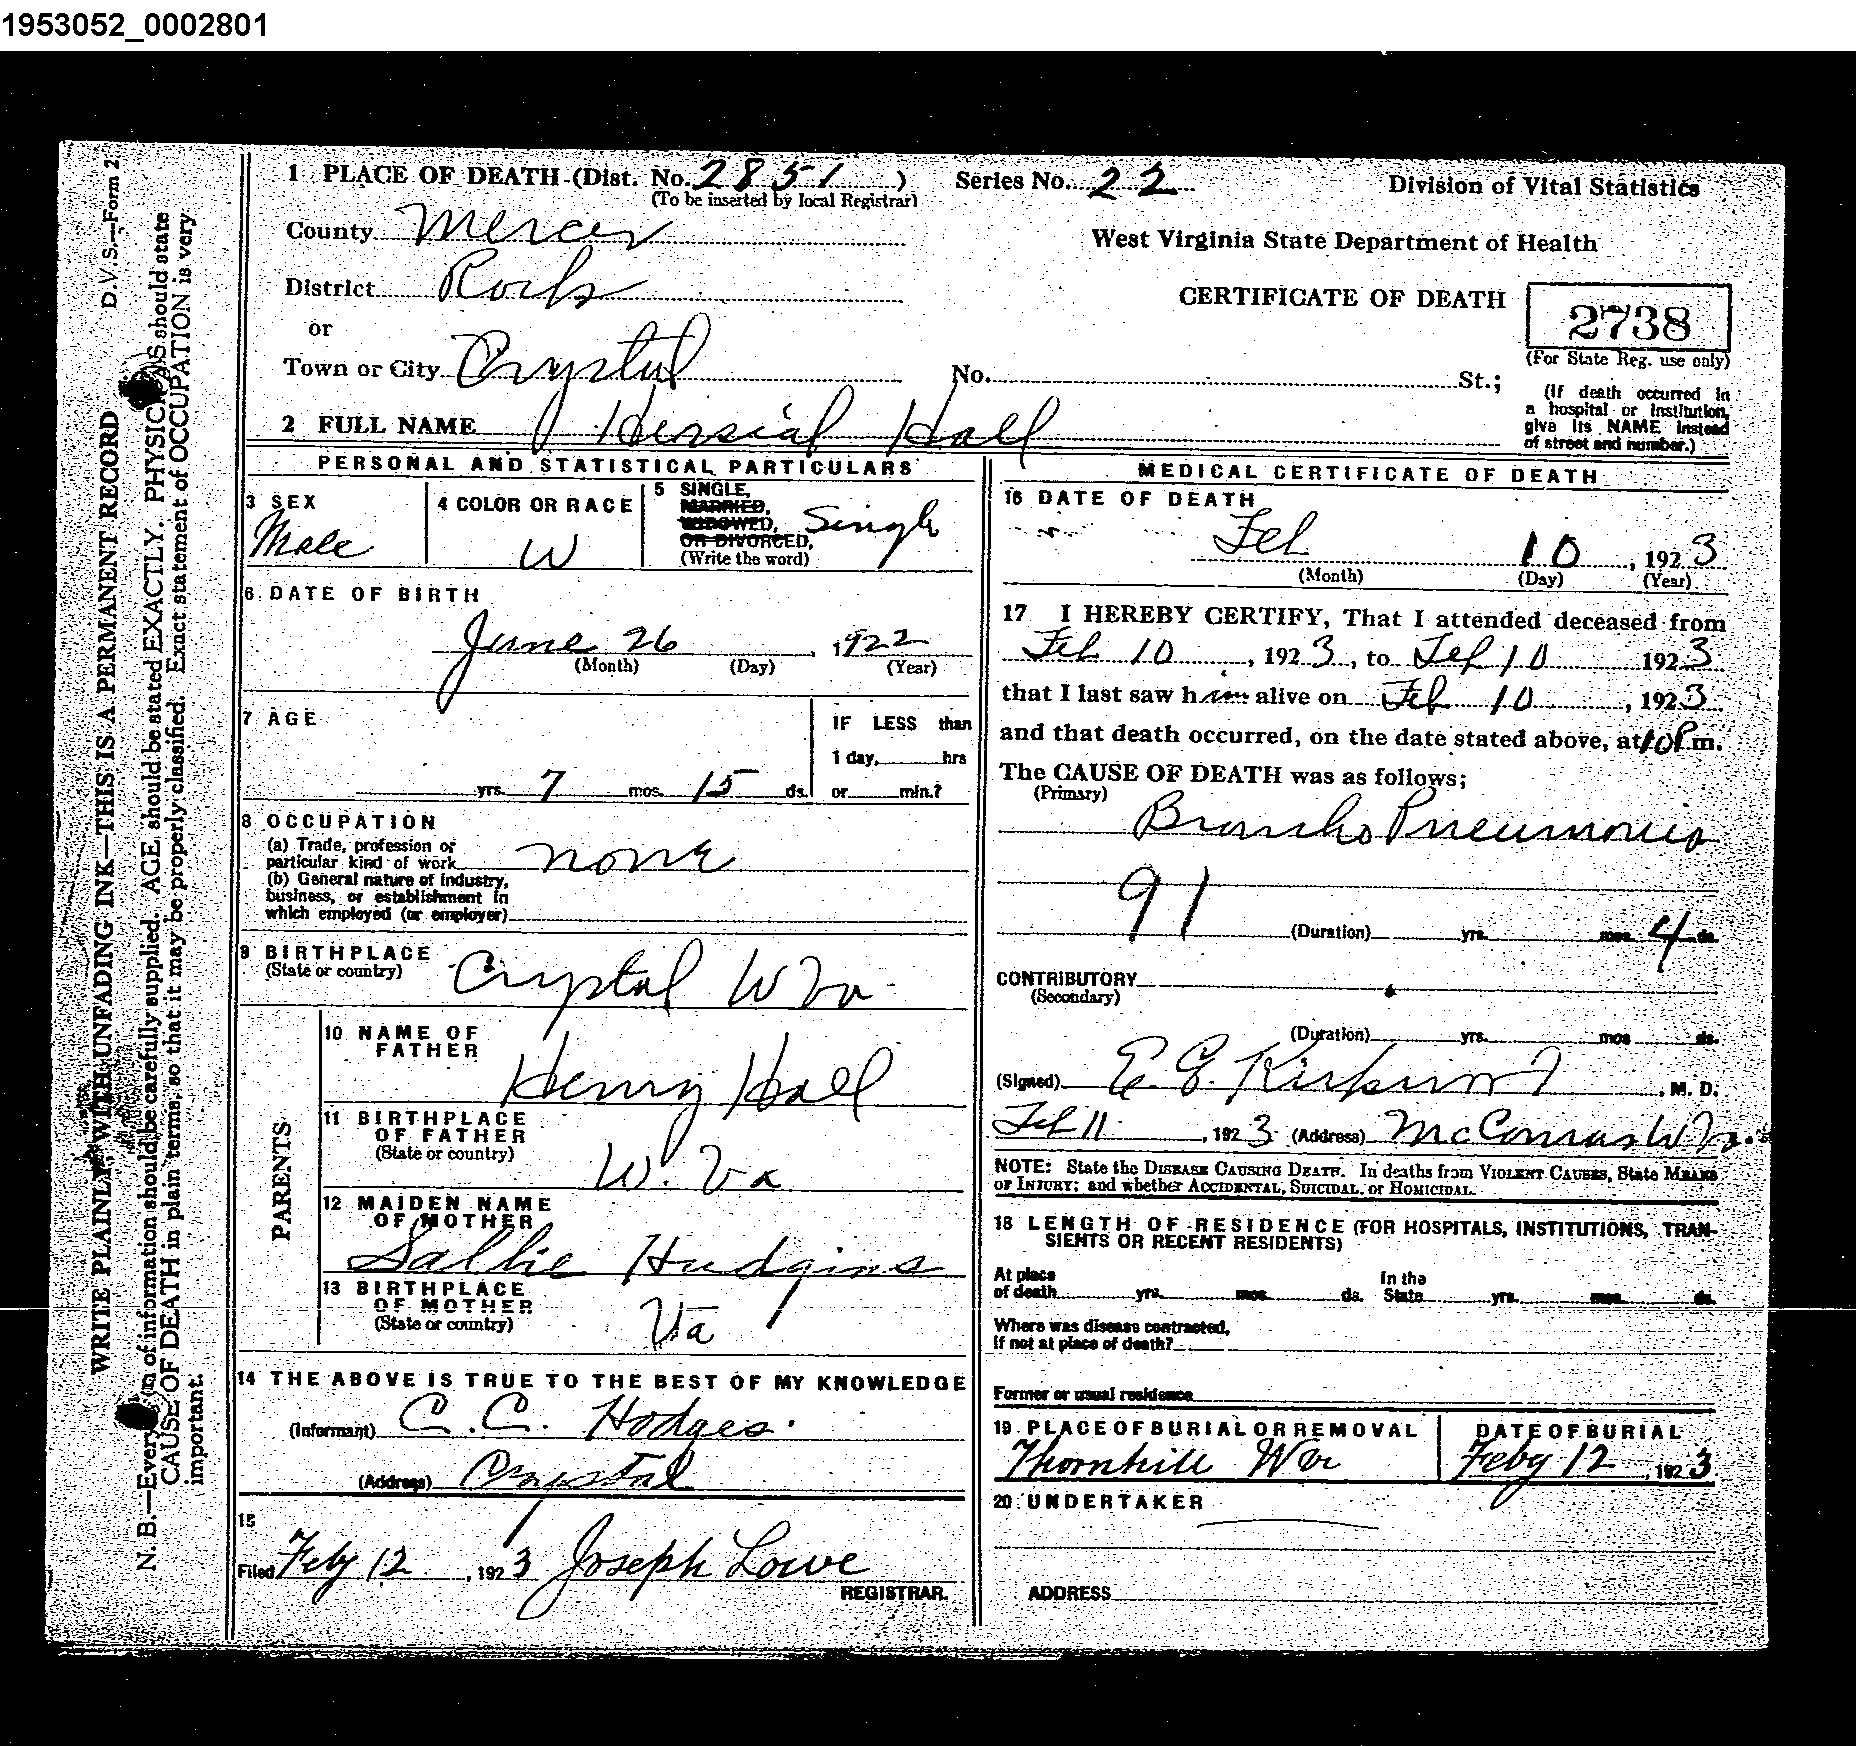 1953052_0002801
D.V.S.—Form 2
WRITE PLAINLY, WITH UNFADING INK—THIS IS A PERMANENT RECORD
N. B.—Every item of information should be carefully supplied. AGE should be stated EXACTLY. PHYSICIANS should state
CAUSE OF DEATH in plain terms, so that it may be properly classified. Exact statement of OCCUPATION is very
important.
1 PLACE OF DEATH (Dist. No. 2851 ) Series No. 22 Division of Vital Statistics
(To be inserted by local Registrar)
County Mercer
West Virginia State Department of Health
District Rock
CERTIFICATE OF DEATH 2738
or
(For State Reg. use only)
Town or City Crystal No. St.;
(If death occurred in
a hospital or institution,
give its NAME instead
of street and number.)
2 FULL NAME Hersial Hall
PERSONAL AND STATISTICAL PARTICULARS
3 SEX
Male
4 COLOR OR RACE
W
5 SINGLE,
MARRIED,
WIDOWED,
OR DIVORCED,
(Write the word)
Single
6 DATE OF BIRTH
June 26, 1922
(Month) (Day) (Year)
7 AGE
yrs. 7 mos. 15 ds.
IF LESS than
1 day, hrs
or min.?
8 OCCUPATION
(a) Trade, profession or
particular kind of work none
(b) General nature of industry,
business, or establishment in
which employed (or employer)
9 BIRTHPLACE
(State or country) Crystal W Va
PARENTS
10 NAME OF
FATHER
Henry Hall
11 BIRTHPLACE
OF FATHER
(State or country)
W. Va
12 MAIDEN NAME
OF MOTHER
Sallie Hudgins
13 BIRTHPLACE
OF MOTHER
(State or country)
Va
14 THE ABOVE IS TRUE TO THE BEST OF MY KNOWLEDGE
(Informant) C. C. Hodges.
(Address) Crystal
15
Filed Feby 12, 1923 Joseph Lowe
REGISTRAR.
MEDICAL CERTIFICATE OF DEATH
16 DATE OF DEATH
Feb 10, 1923
(Month) (Day) (Year)
17 I HEREBY CERTIFY, That I attended deceased from
Feb 10, 1923, to Feb 10 1923
that I last saw him alive on Feb 10, 1923
and that death occurred, on the date stated above, at 10 P m.
The CAUSE OF DEATH was as follows;
(Primary)
Broncho Pneumonia
91
(Duration) yrs. mos. 4 ds.
CONTRIBUTORY
(Secondary)
(Duration) yrs. mos ds.
(Signed) E. E. , M. D.
Feb 11, 1923 (Address) McComas W Va.
NOTE: State the DISEASE CAUSING DEATH. In deaths from VIOLENT CAUSES, State MEANS
OF INJURY; and whether ACCIDENTAL, SUICIDAL, or HOMICIDAL.
18 LENGTH OF RESIDENCE (FOR HOSPITALS, INSTITUTIONS, TRAN-
SIENTS OR RECENT RESIDENTS)
At place
of death yrs. mos. ds.
In the
State yrs. mos. ds.
Where was disease contracted,
if not at place of death?
Former or usual residence
19 PLACE OF BURIAL OR REMOVAL
Thornhill W Va
DATE OF BURIAL
Feby 12, 1923
20 UNDERTAKER
ADDRESS